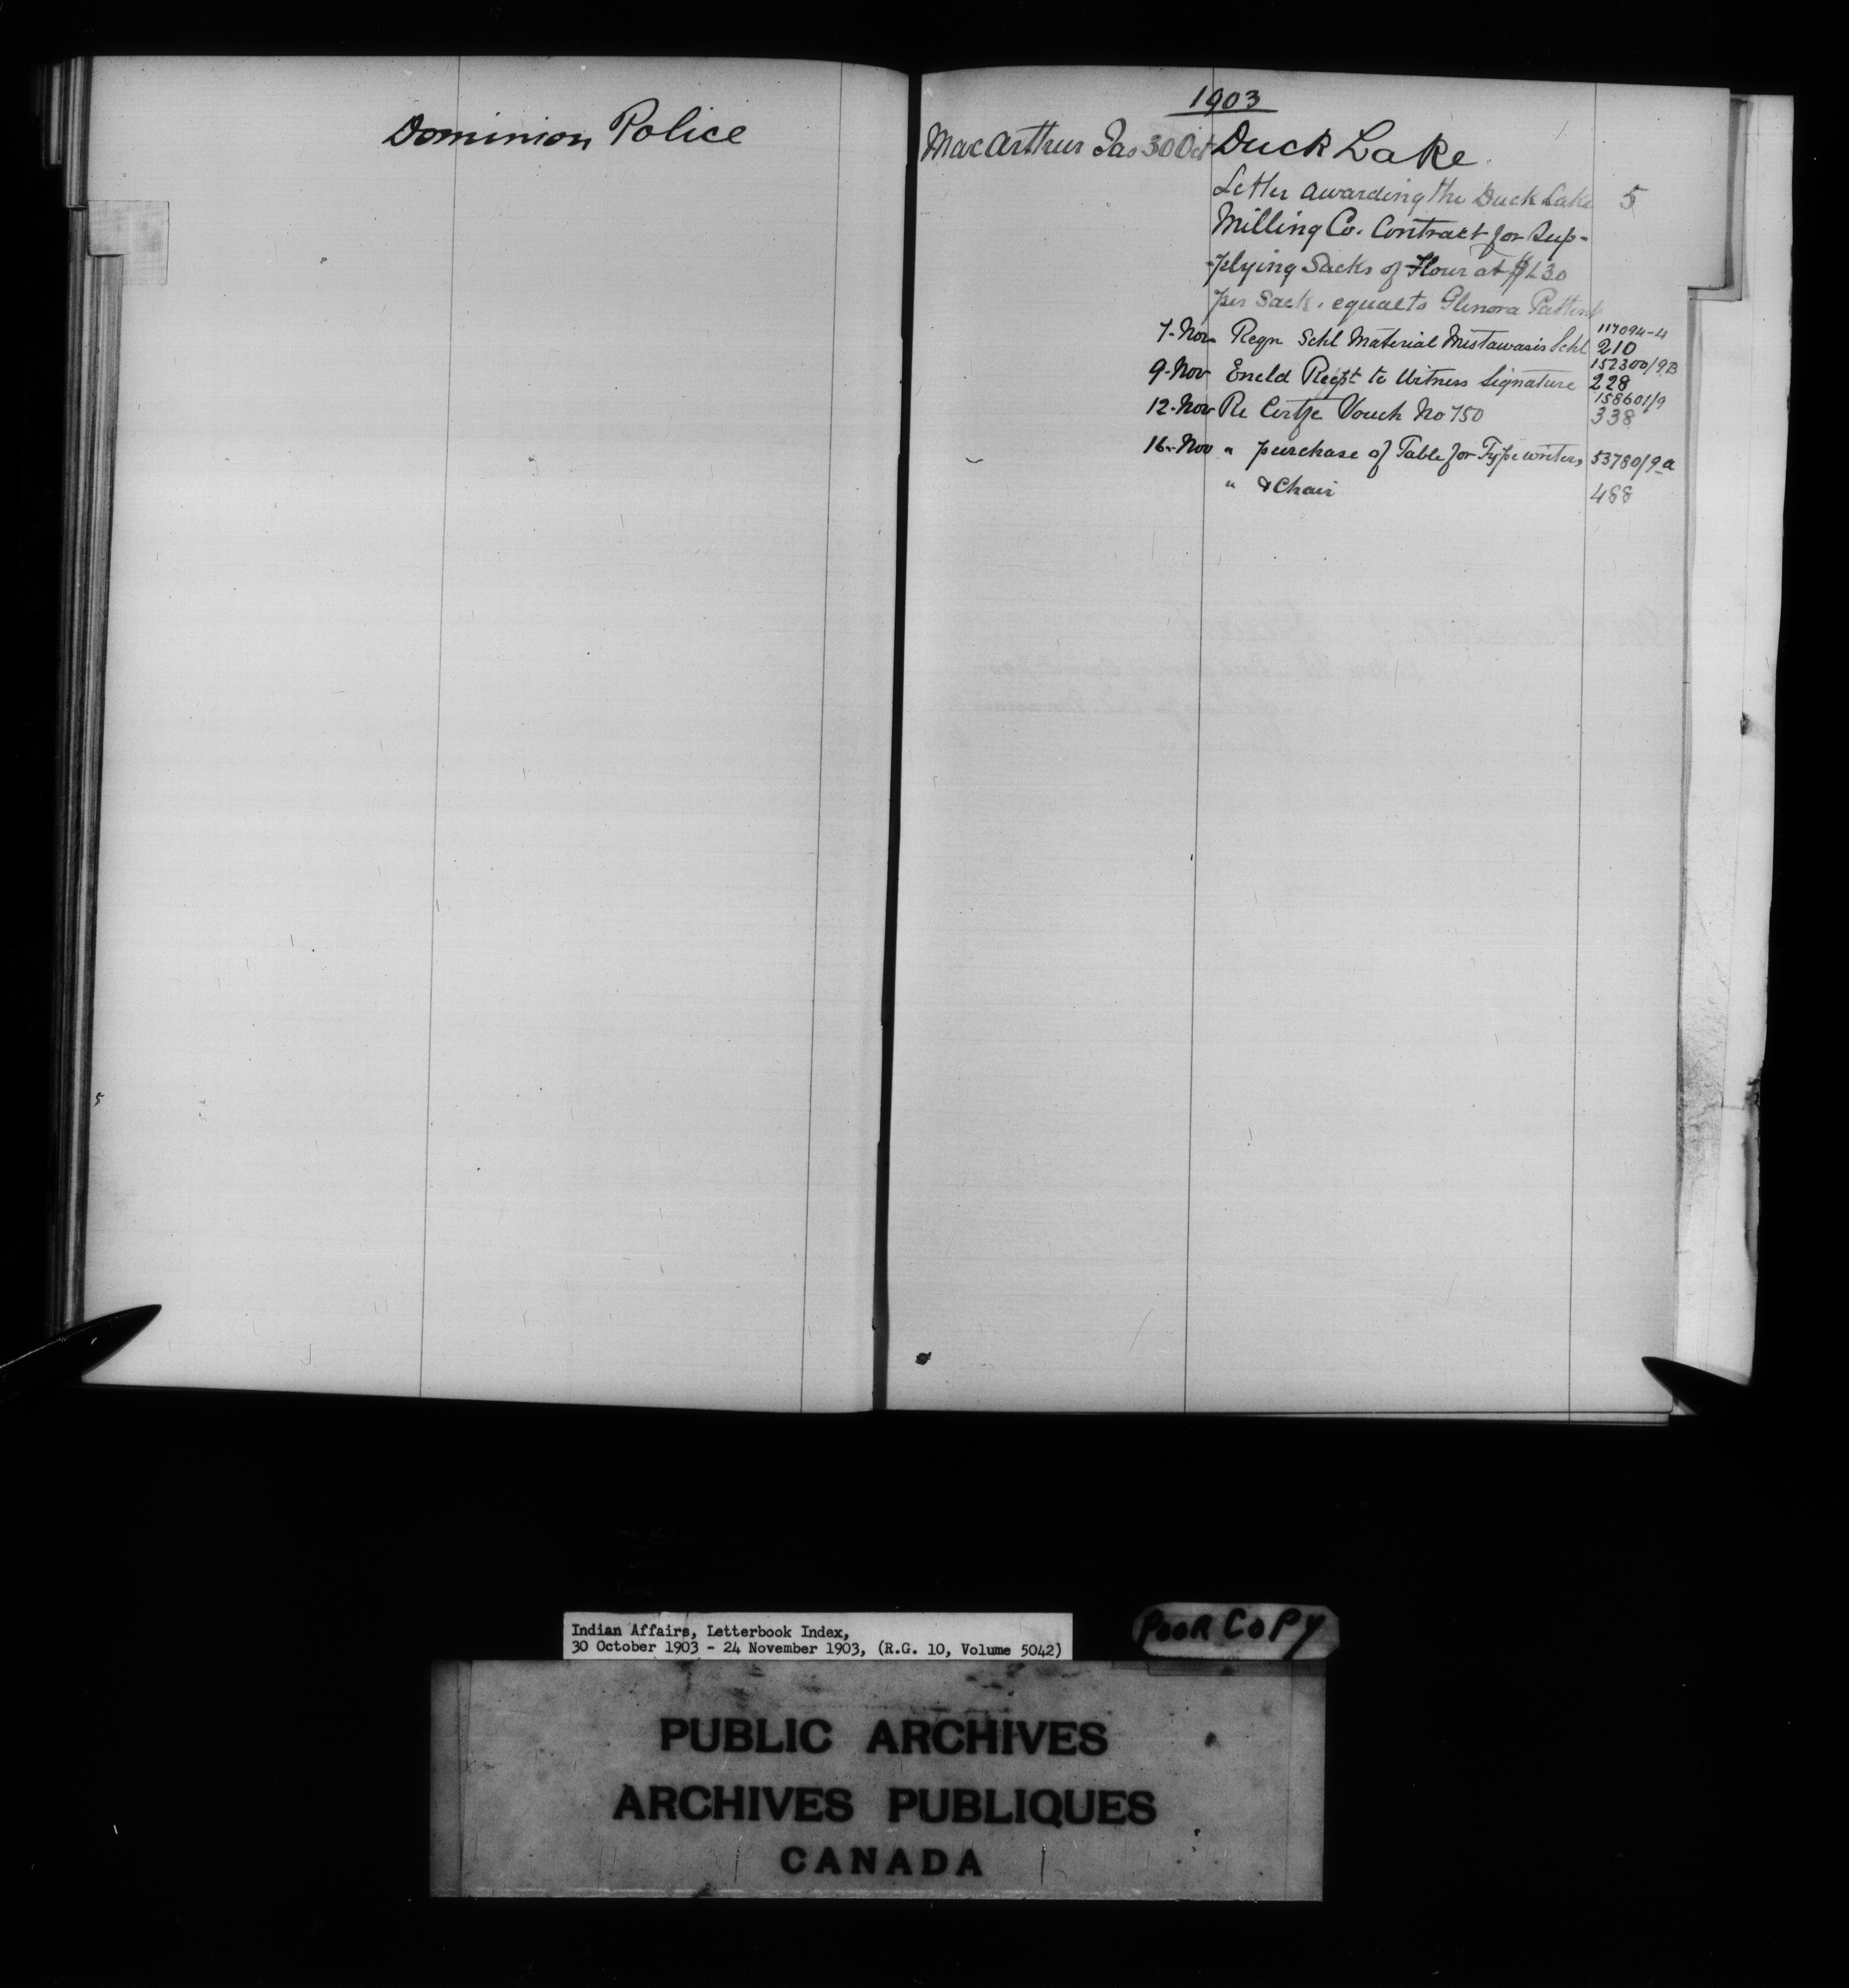 Dominion Police
1903
MacArthur Jas 30 Oct Duck Lake
Letter awarding the Duck Lake 5
Milling Co. Contract for Sup-
-plying Sacks of Flour at $1.30
per Sack, equal to Glenora Pattent
117094-4
7-Nov Reqn Schl Material Mistawasis Schl 210
152300/9B
9-Nov Encld Recpt to Witness Signature 228
158601/9
12-Nov Re Certfe Vouch No 750 338
16-Nov " purchase of Table for Typewriter, 53780/9-a
" & Chair 488
Indian Affairs, Letterbook Index,
30 October 1903 - 24 November 1903, (R.G. 10, Volume 5042)
POOR COPY
PUBLIC ARCHIVES
ARCHIVES PUBLIQUES
CANADA